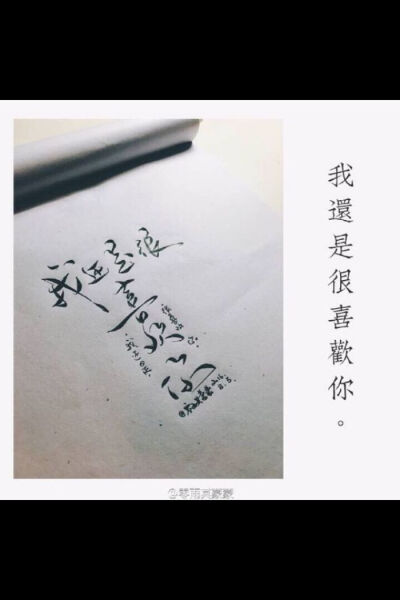 我还是很
喜欢你
我還是很喜歡你。